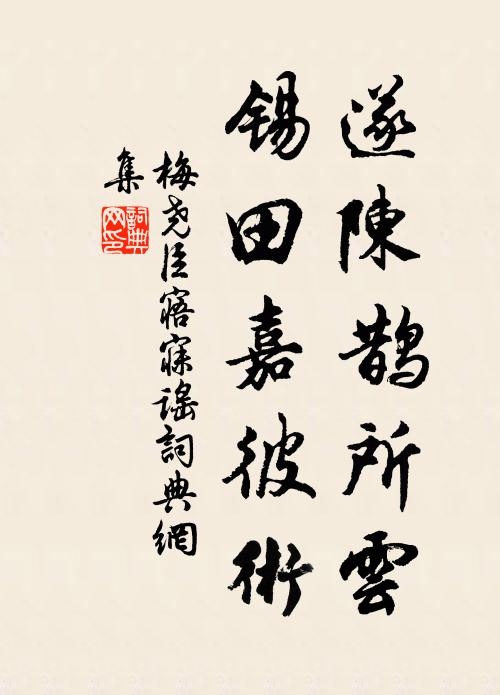 遂陳鵲所雲
錫田嘉彼術
梅堯臣寤寐謠詞典網
集
詞典網印